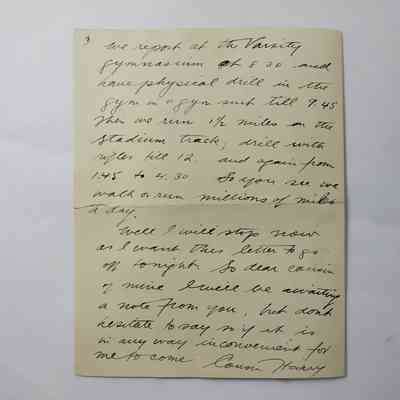 3
we report at the Varsity
gymnasium at 8 30 and
have physical drill in the
gym in a gym suit till 9.45
Then we run 1½ miles on the
stadium track, drill with
rifles till 12. and again from
1:45 to 4.30 So you see we
walk or run millions of miles
a day.
Well I will stop now
as I want this letter to go
off tonight. So dear cousin
of mine I will be awaiting
a note from you, but don't
hesitate to say so if it is
in any way inconvenient for
me to come Cousin Harry